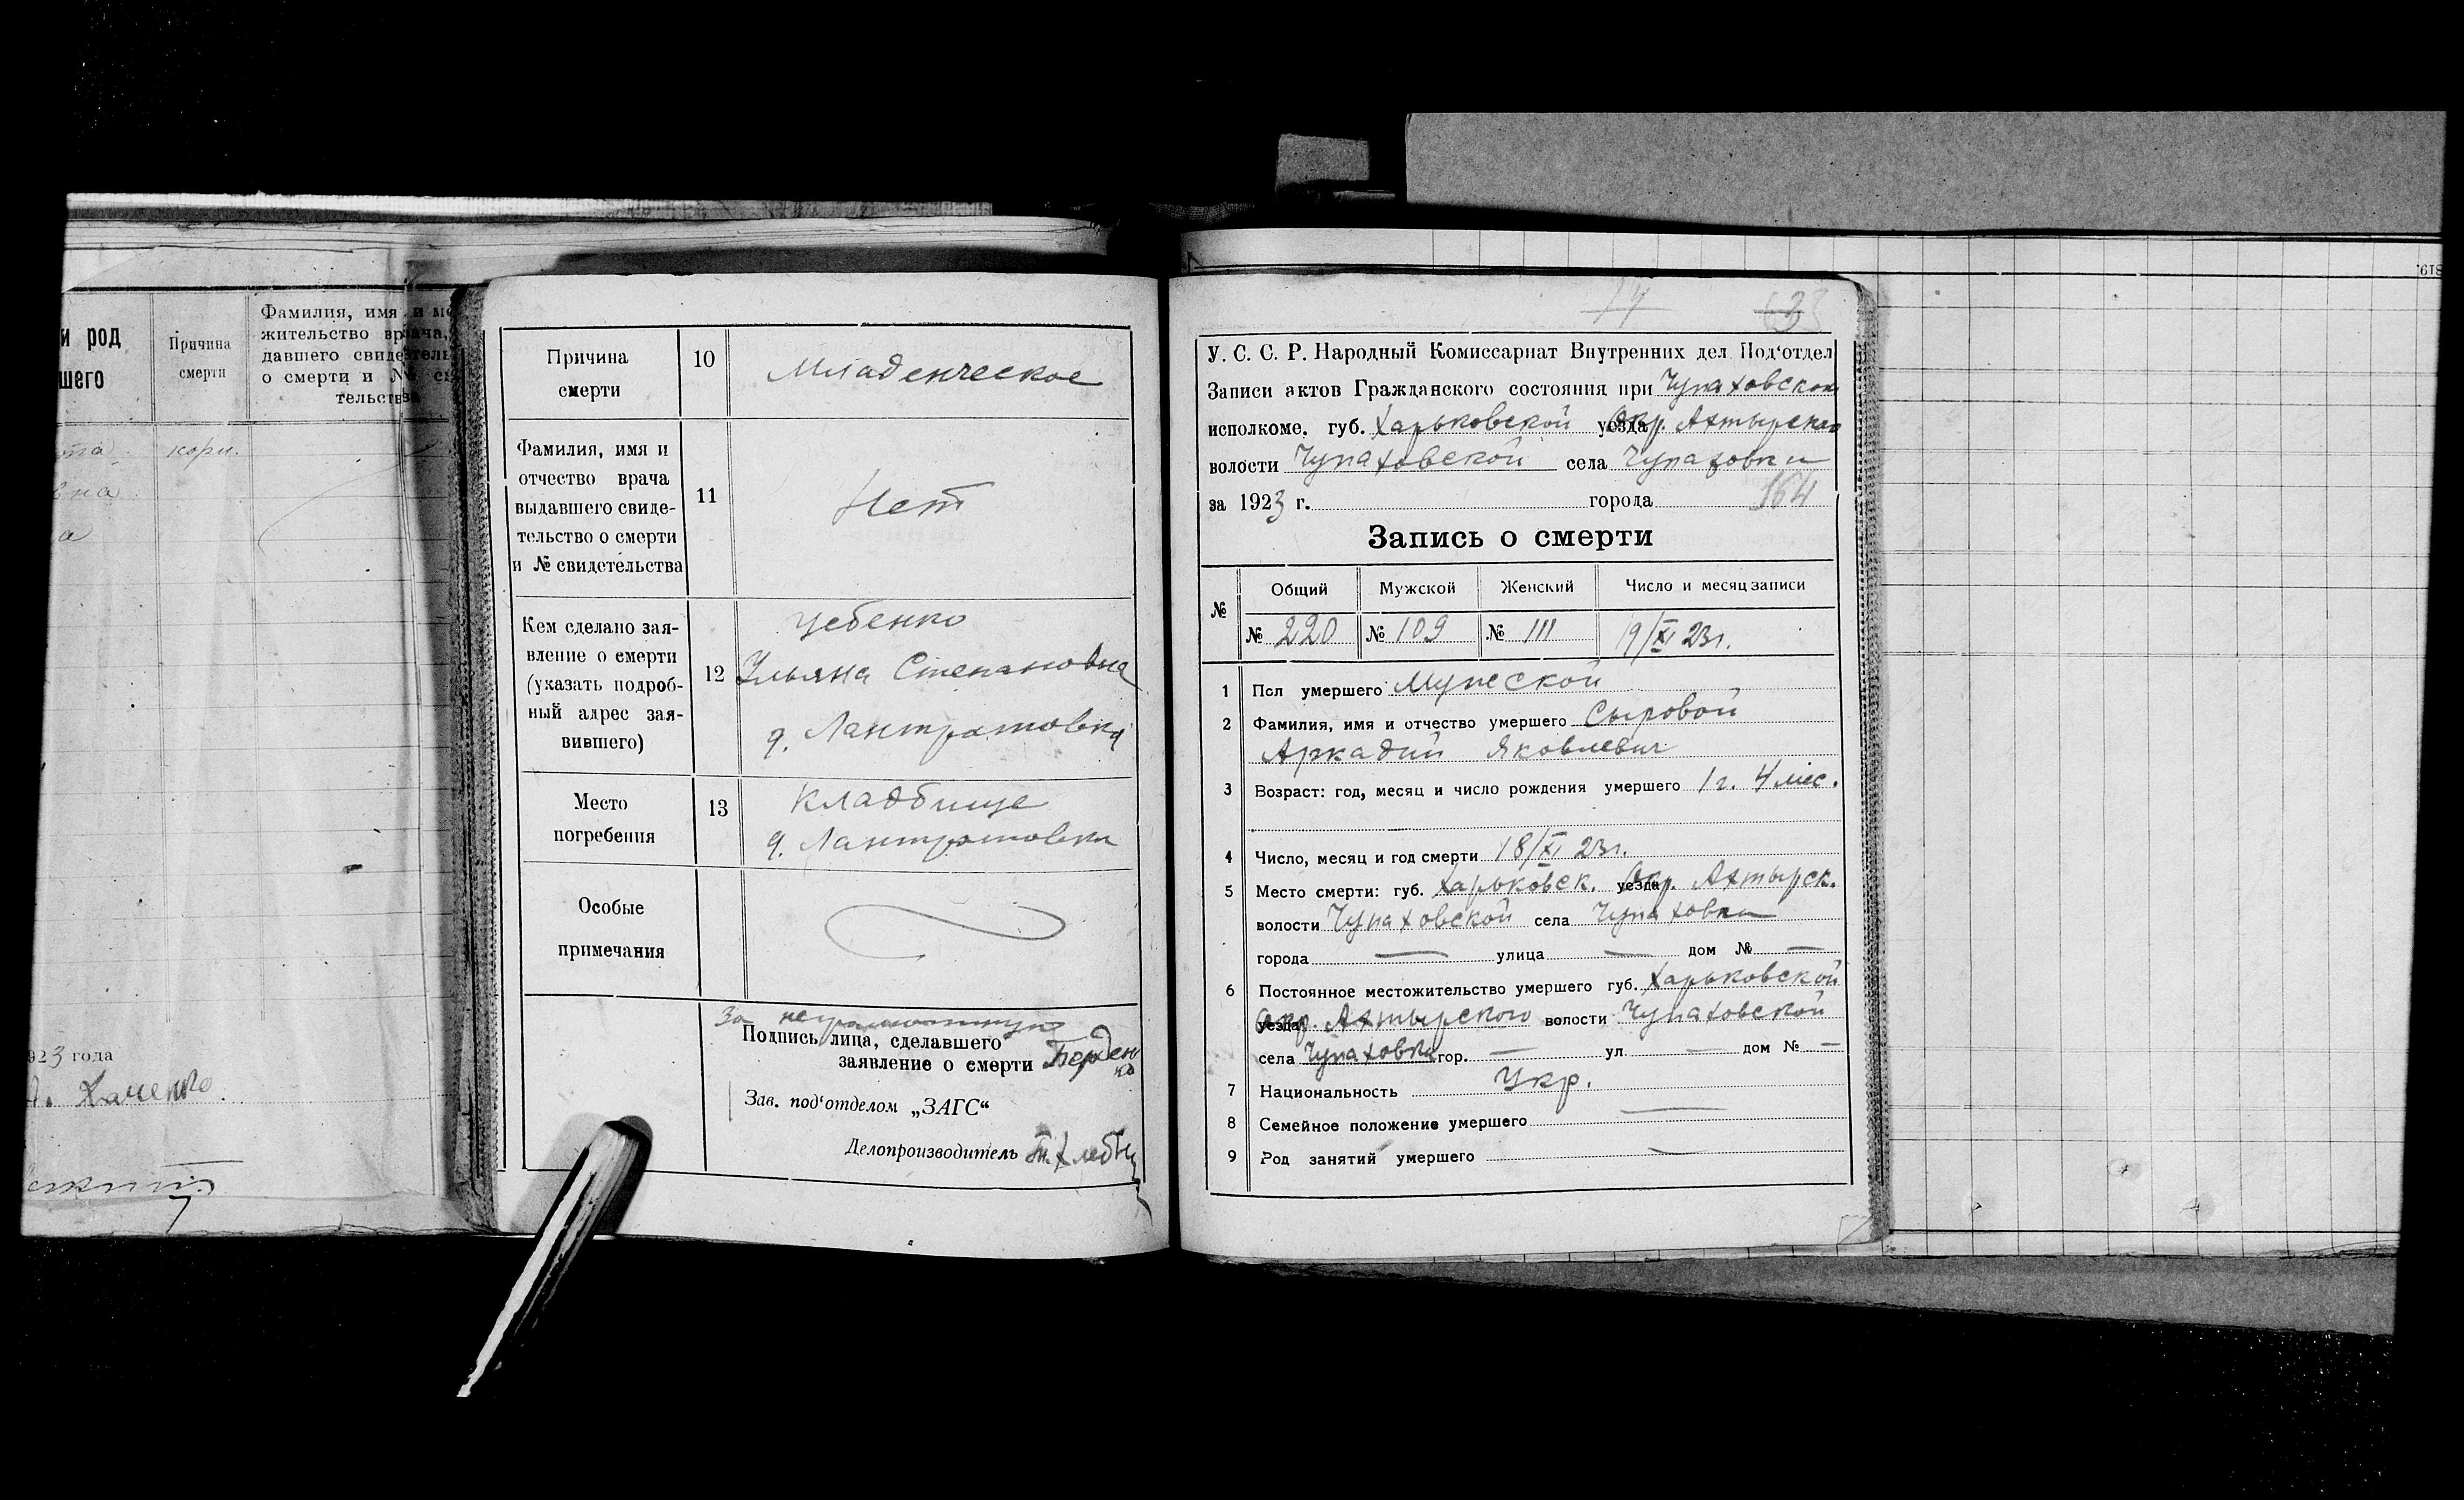 и род
шего
Причина
смерти
Фамилия, имя и
жительство врача,
давшего свидетель
о смерти и №
тельства
кори.
1923 года
Причина
смерти
10
Младенческое
Фамилия, имя и
отчество врача
выдавшего свиде-
тельство о смерти
и № свидетельства
11
Нет
Кем сделано зая-
вление о смерти
(указать подроб-
ный адрес зая-
вившего)
12
Ульяна Степановна
д. Лантратовка
Место
погребения
13
Кладбище
д. Лантратовки
Особые
примечания
За неграмотную
Подпись лица, сделавшего
заявление о смерти
Зав. под'отделом „ЗАГС“
Делопроизводитель
У. С. С. Р. Народный Комиссариат Внутренних дел Под'отдел
Записи актов Гражданского состояния при Чупаховском
исполкоме. губ. Харьковской уезда Окр. Ахтырского
волости Чупаховской села Чупаховки
за 1923 г. города 164
Запись о смерти
№ Общий Мужской Женский Число и месяц записи
№ 220 № 109 № 111 19/XI 23г.
1 Пол умершего Мужеской
2 Фамилия, имя и отчество умершего Сыровой
Аркадий Яковлевич
3 Возраст: год, месяц и число рождения умершего 1 г. 4 мес.
4 Число, месяц и год смерти 18/XI 23г.
5 Место смерти: губ. Харьковск. уезда Окр. Ахтырск.
волости Чупаховской села Чупаховки
города — улица — дом № —
6 Постоянное местожительство умершего губ. Харьковской
уезда Окр. Ахтырского волости Чупаховской
села Чупаховки гор. — ул. — дом № —
7 Национальность Укр.
8 Семейное положение умершего —
9 Род занятий умершего —